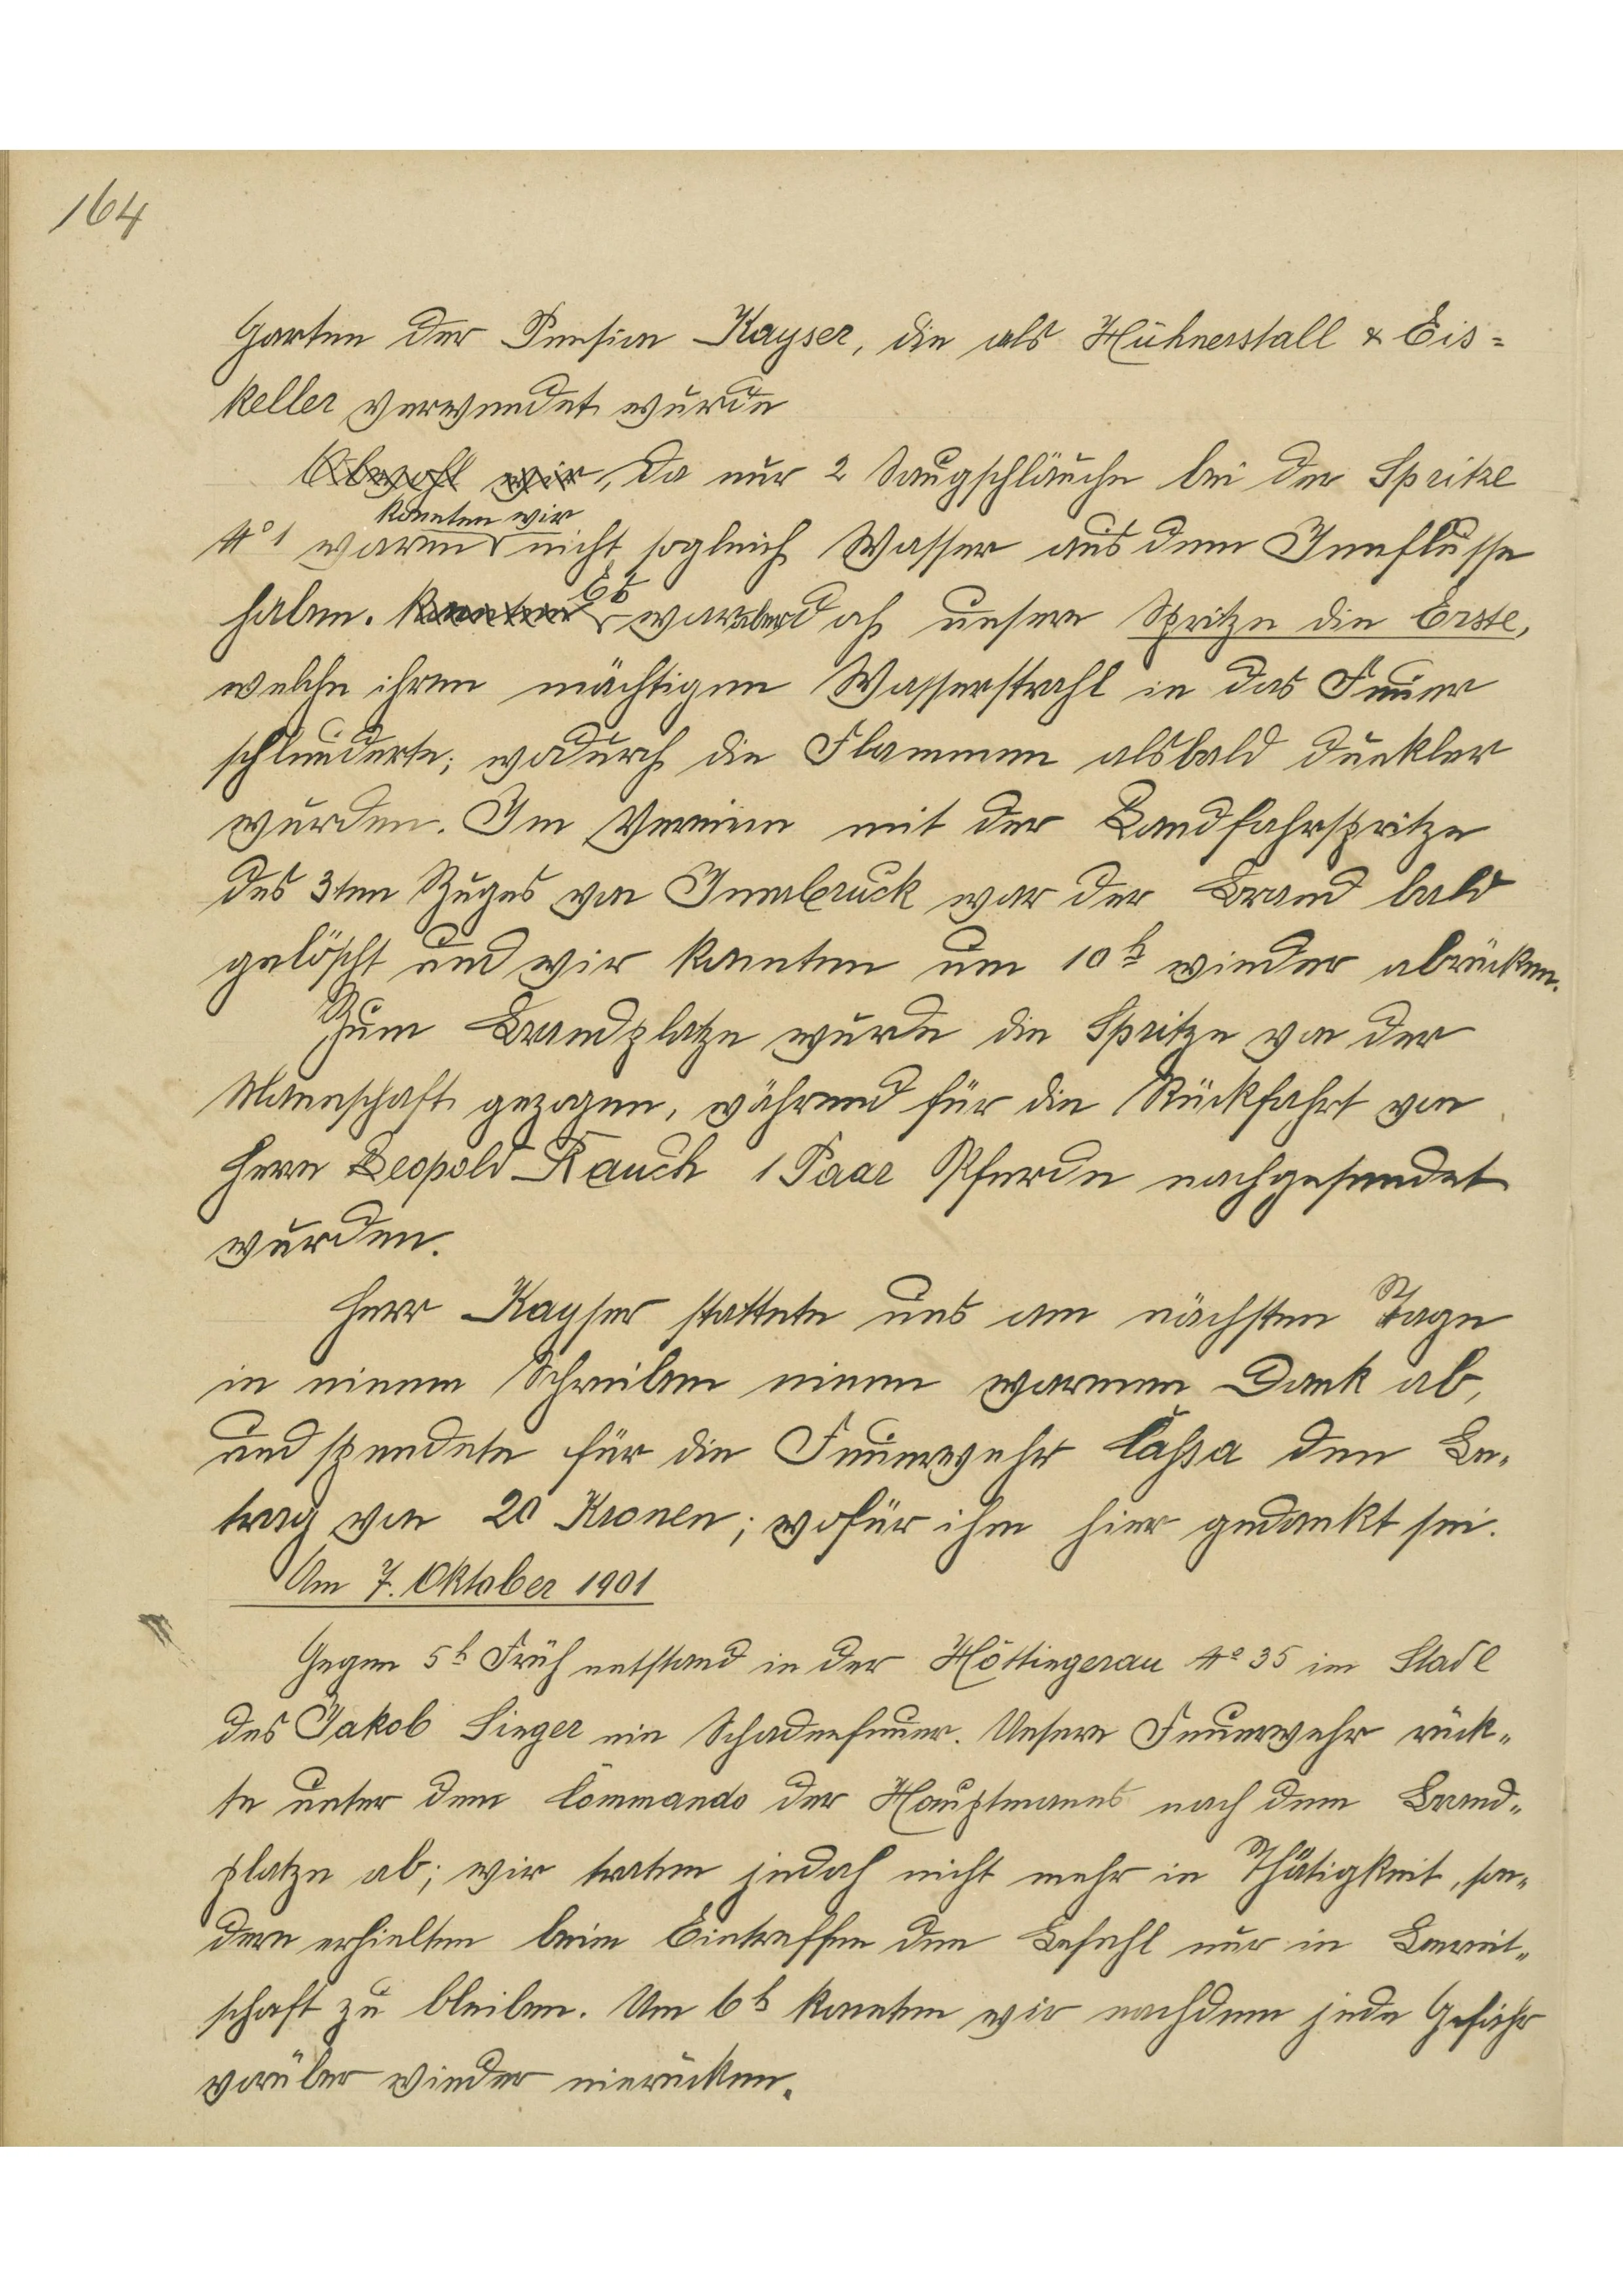 164
Garten der Pension Kayser, die als Hühnerstall & Eis=
keller verwendet wurde
Obwohl wir, da nur 2 Saugschläuche bei der Spritze
konnten wir
No 1 waren nicht sogleich Wasser aus dem Innflusse
haben. konnten Es war aber doch unsere Spritze die Erste,
welche ihren mächtigen Wasserstrahl in das Feuer
schleuderte; wodurch die Flammen alsbald dunkler
wurden. Im Verein mit der Landfahrspritze
des 3ten Zuges von Innsbruck war der Brand bald
gelöscht und wir konnten um 10h wieder abrücken.
Zum Brandplatze wurde die Spritze von der
Mannschaft gezogen, während für die Rückfahrt von
Herrn Leopold Rauch 1 Paar Pferde nachgesendet
wurden.
Herr Kayser stattete uns am nächsten Tage
in einem Schreiben einen warmen Dank ab,
und spendete für die Feuerwehr Cassa den Be-
trag von 20 Kronen; wofür ihm hier gedankt sei.
Am 7. Oktober 1901
Gegen 5h Früh entstand in der Höttingerau No 35 im Stadl
des Jakob Singer ein Schadenfeuer. Unsere Feuerwehr rück-
te unter dem Commando der Hauptmanns nach dem Brand-
platze ab; wir traten jedoch nicht mehr in Thätigkeit, son-
dern erhielten beim Eintreffen den Befehl nur in Bereit-
schaft zu bleiben. Um 6h konnten wir nachdem jede Gefahr
vorüber wieder einrücken.